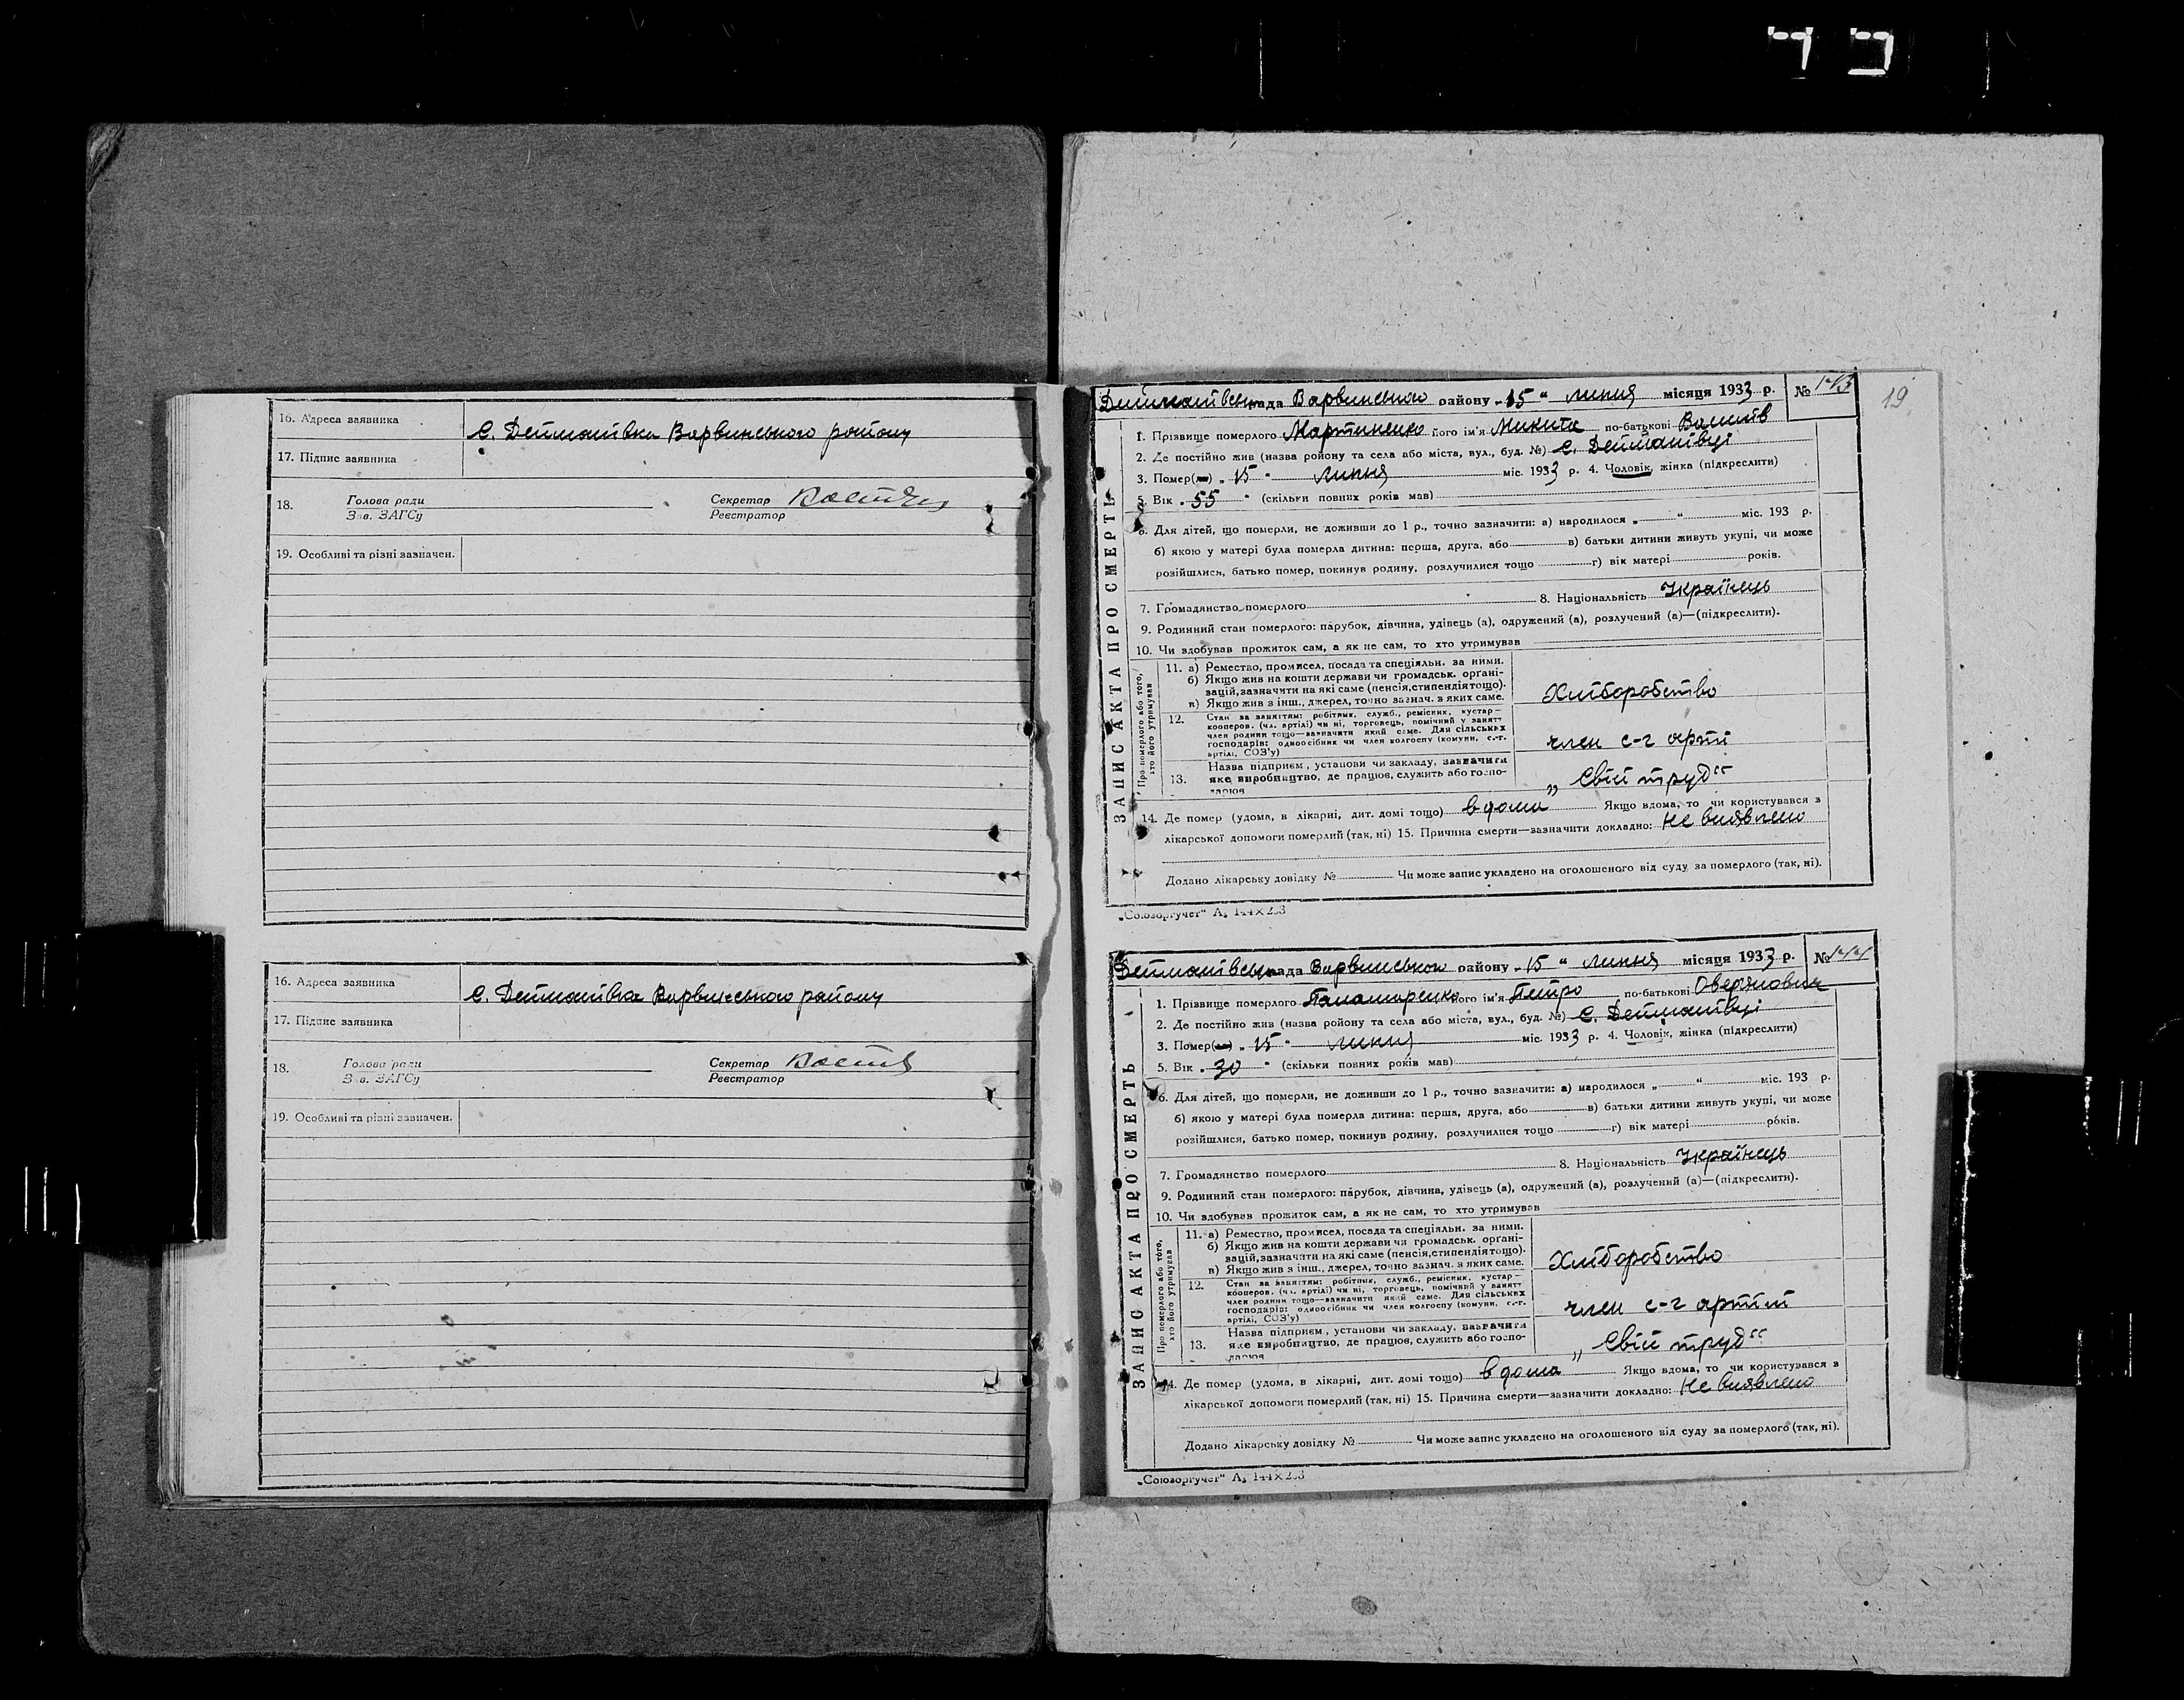 16. Адреса заявника
с. Дейманівка Варвинського району
17. Підпис заявника
18. Голова ради
Зав. ЗАГСу
Секретар
Реєстратор
19. Особливі та різні зазначен.
16. Адреса заявника
с. Дейманівка Варвинського району
17. Підпис заявника
18. Голова ради
Зав. ЗАГСу
Секретар
Реєстратор
19. Особливі та різні зазначен.
19
ЗАПИС АКТА ПРО СМЕРТЬ
Дейманівська рада Варвинського району „15“ липня місяця 1933 р. № 143
1. Прізвище померлого Мартиненко його ім'я Микита по-батькові
2. Де постійно жив (назва району та села або міста, вул., буд. №) с. Дейманівці
3. Помер(ла) „15“ липня міс. 1933 р. 4. Чоловік, жінка (підкреслити)
5. Вік „55“ (скільки повних років мав)
6. Для дітей, що померли, не доживши до 1 р., точно зазначити: а) народилося „ “ міс. 193 р.
б) якою у матері була померла дитина: перша, друга, або в) батьки дитини живуть укупі, чи може
розійшлися, батько помер, покинув родину, розлучилися тощо г) вік матері років.
7. Громадянство померлого 8. Національність Українець
9. Родинний стан померлого: парубок, дівчина, удівець (а), одружений (а), розлучений (а)—(підкреслити).
10. Чи здобував прожиток сам, а як не сам, то хто утримував
Про померлого або того, хто його утримував
11. а) Ремество, промисел, посада та спеціяльн. за ними.
б) Якщо жив на кошти держави чи громадськ. орґані-
зацій, зазначити на які саме (пенсія, стипендія тощо).
в) Якщо жив з інш., джерел, точно зазнач. з яких саме.
Хліборобство
12. Стан за заняттям: робітник, служб., ремісник, кустар—
кооперов. (чл. артілі) чи ні, торговець, помічний у занятт
член родини тощо—зазначити який саме. Для сільських
господарів: одноосібник чи член колгоспу (комуни, с.-г.
артілі, СОЗ'у)
член с-г арті
13. Назва підприєм., установи чи закладу, зазначити
яке виробництво, де працює, служить або госпо-
дарює
„Свій труд“
14. Де помер (удома, в лікарні, дит. домі тощо) вдома Якщо вдома, то чи користувався з
лікарської допомоги померлий (так, ні) 15. Причина смерти—зазначити докладно: Не виявлено
Додано лікарську довідку № Чи може запис укладено на оголошеного від суду за померлого (так, ні).
„Союзоргучет“ А₅ 144×203
ЗАПИС АКТА ПРО СМЕРТЬ
Дейманівська рада Варвинського району „15“ липня місяця 1933 р. № 144
1. Прізвище померлого Паламаренко його ім'я Петро по-батькові Оверянович
2. Де постійно жив (назва району та села або міста, вул., буд. №) с. Дейманівці
3. Помер(ла) „15“ липня міс. 1933 р. 4. Чоловік, жінка (підкреслити)
5. Вік „30“ (скільки повних років мав)
6. Для дітей, що померли, не доживши до 1 р., точно зазначити: а) народилося „ “ міс. 193 р.
б) якою у матері була померла дитина: перша, друга, або в) батьки дитини живуть укупі, чи може
розійшлися, батько помер, покинув родину, розлучилися тощо г) вік матері років.
7. Громадянство померлого 8. Національність Українець
9. Родинний стан померлого: парубок, дівчина, удівець (а), одружений (а), розлучений (а)—(підкреслити).
10. Чи здобував прожиток сам, а як не сам, то хто утримував
Про померлого або того, хто його утримував
11. а) Ремество, промисел, посада та спеціяльн. за ними.
б) Якщо жив на кошти держави чи громадськ. орґані-
зацій, зазначити на які саме (пенсія, стипендія тощо).
в) Якщо жив з інш., джерел, точно зазнач. з яких саме.
Хліборобство
12. Стан за заняттям: робітник, служб., ремісник, кустар—
кооперов. (чл. артілі) чи ні, торговець, помічний у занятт
член родини тощо—зазначити який саме. Для сільських
господарів: одноосібник чи член колгоспу (комуни, с.-г.
артілі, СОЗ'у)
член с-г артілі
13. Назва підприєм., установи чи закладу, зазначити
яке виробництво, де працює, служить або госпо-
дарює
„Свій труд“
14. Де помер (удома, в лікарні, дит. домі тощо) вдома Якщо вдома, то чи користувався з
лікарської допомоги померлий (так, ні) 15. Причина смерти—зазначити докладно: Не виявлено
Додано лікарську довідку № Чи може запис укладено на оголошеного від суду за померлого (так, ні).
„Союзоргучет“ А₅ 144×203